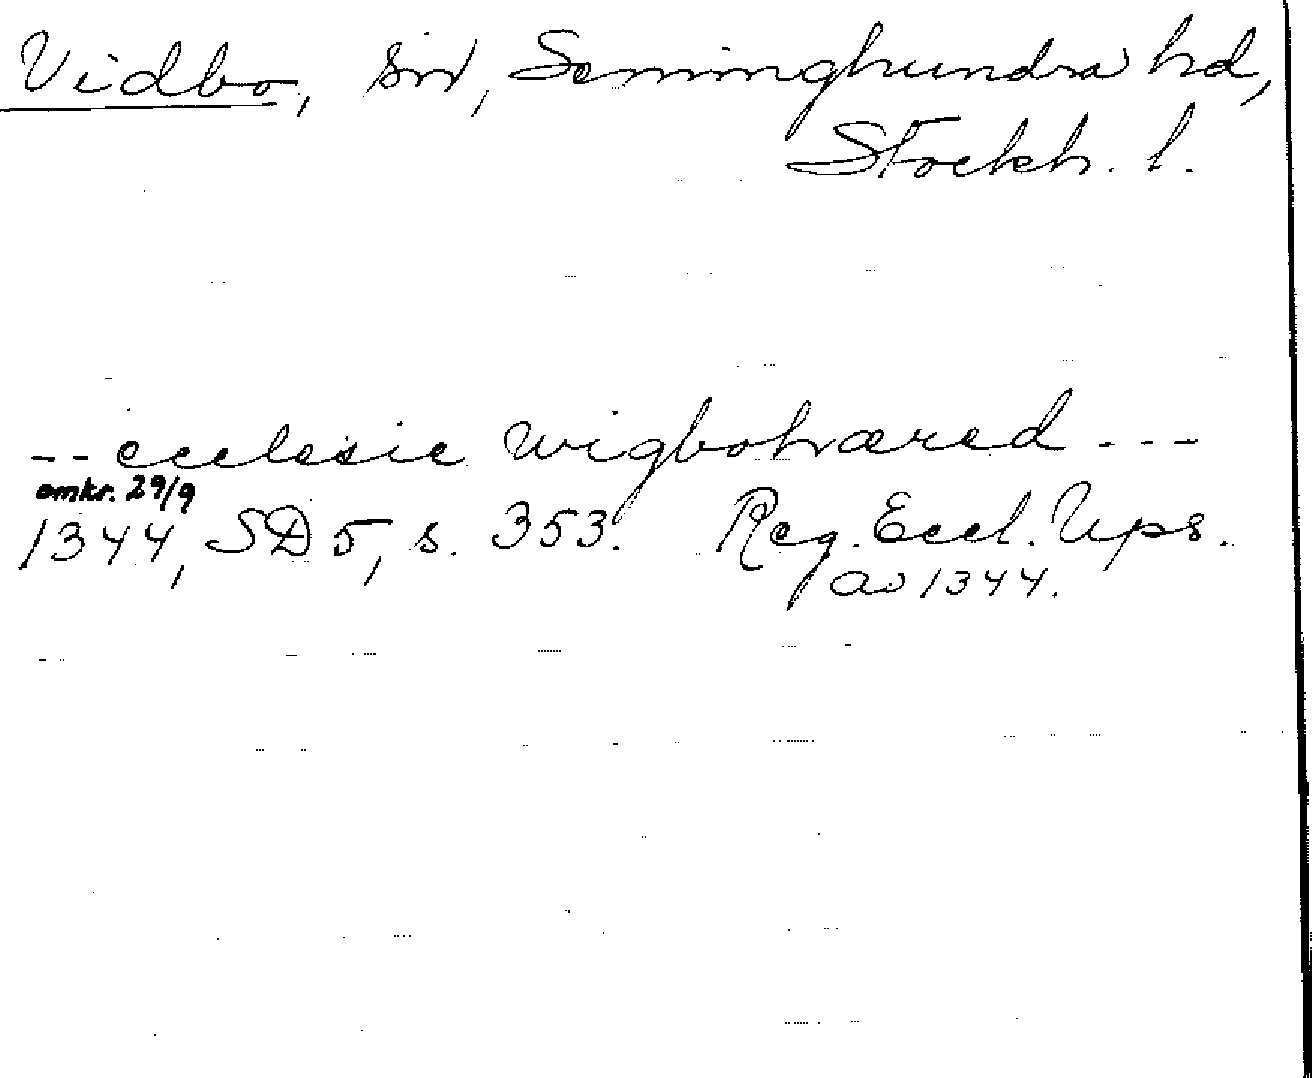 Vidbo, sn, Seminghundra hd,
Stockh. l.
-- ecclesie wigbohæred ---
omkr. 29/9
1344, SD 5, s. 353. Reg. Eccl. Ups.
av 1344.